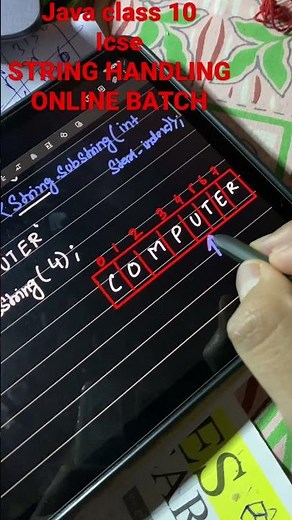 Java class 10
Icse
STRING HANDLING
ONLINE BATCH
String.substring(int
Start-index);
UTER"
string(4);
0 1 2 3 4 5 6 7
C O M P U T E R
ES
AR